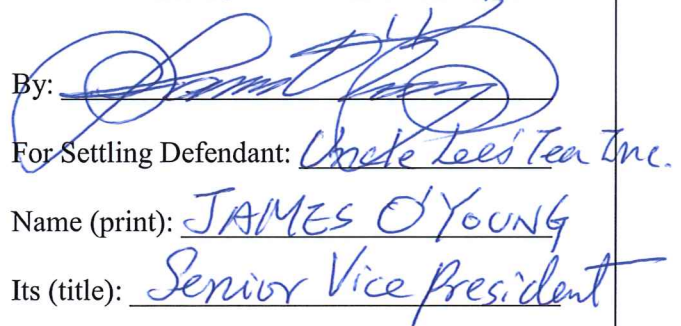 By:
For Settling Defendant: Uncle Lee's Tea Inc.
Name (print): JAMES O'YOUNG
Its (title): Senior Vice President